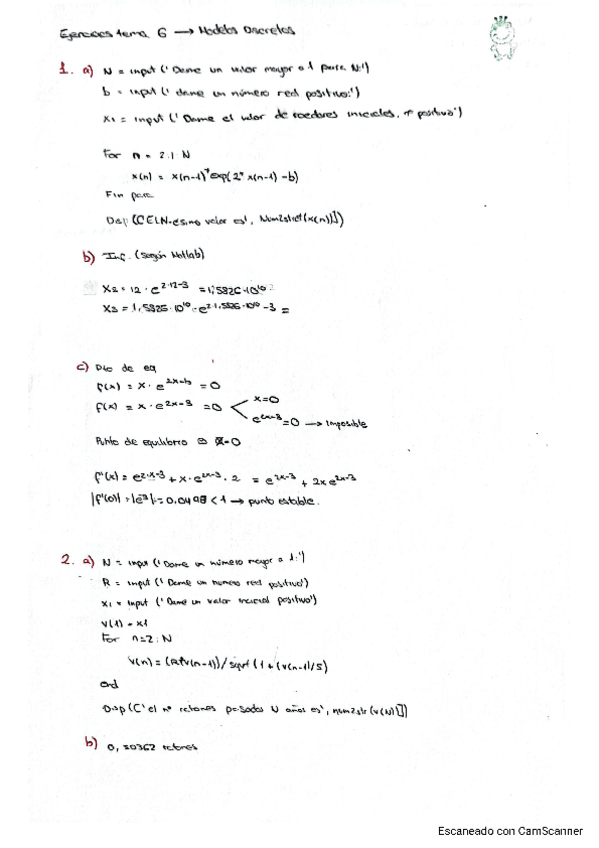 Ejercicios tema 6 → Modelos Discretos
1. a) N = input('Dame un valor mayor a 1 para N:')
b = input('dame un número real positivo:')
x1 = input('Dame el valor de roedores iniciales, nº positivo')
For n = 2:1:N
x(n) = x(n-1)*exp(2*x(n-1)-b)
Fin para
Disp(['El N-esimo valor es', Num2str(x(n))])
b) Inf. (según Matlab)
x2 = 12 · e^2·12-3 = 1,5826·10^10
x3 = 1,5826·10^10 · e^2·1,586·10^10-3 =
c) Pto de eq
f(x) = x · e^2x-b = 0
f(x) = x · e^2x-3 = 0 x=0
e^2x-3 = 0 → Imposible
Punto de equilibrio x=0
f'(x) = e^2·x-3 + x·e^2x-3 · 2 = e^2x-3 + 2x e^2x-3
|f'(0)| = |e^-3| = 0,0498 < 1 → punto estable.
2. a) N = input('Dame un número mayor a 1:')
R = input('Dame un numero real positivo')
x1 = input('Dame un valor inicial positivo')
v(1) = x1
For n=2:N
v(n) = (R*v(n-1))/sqrt(1+(v(n-1)/5)
end
Disp(['el nº ratones pasados N años es', num2str(v(N))])
b) 0,30362 ratones
Escaneado con CamScanner